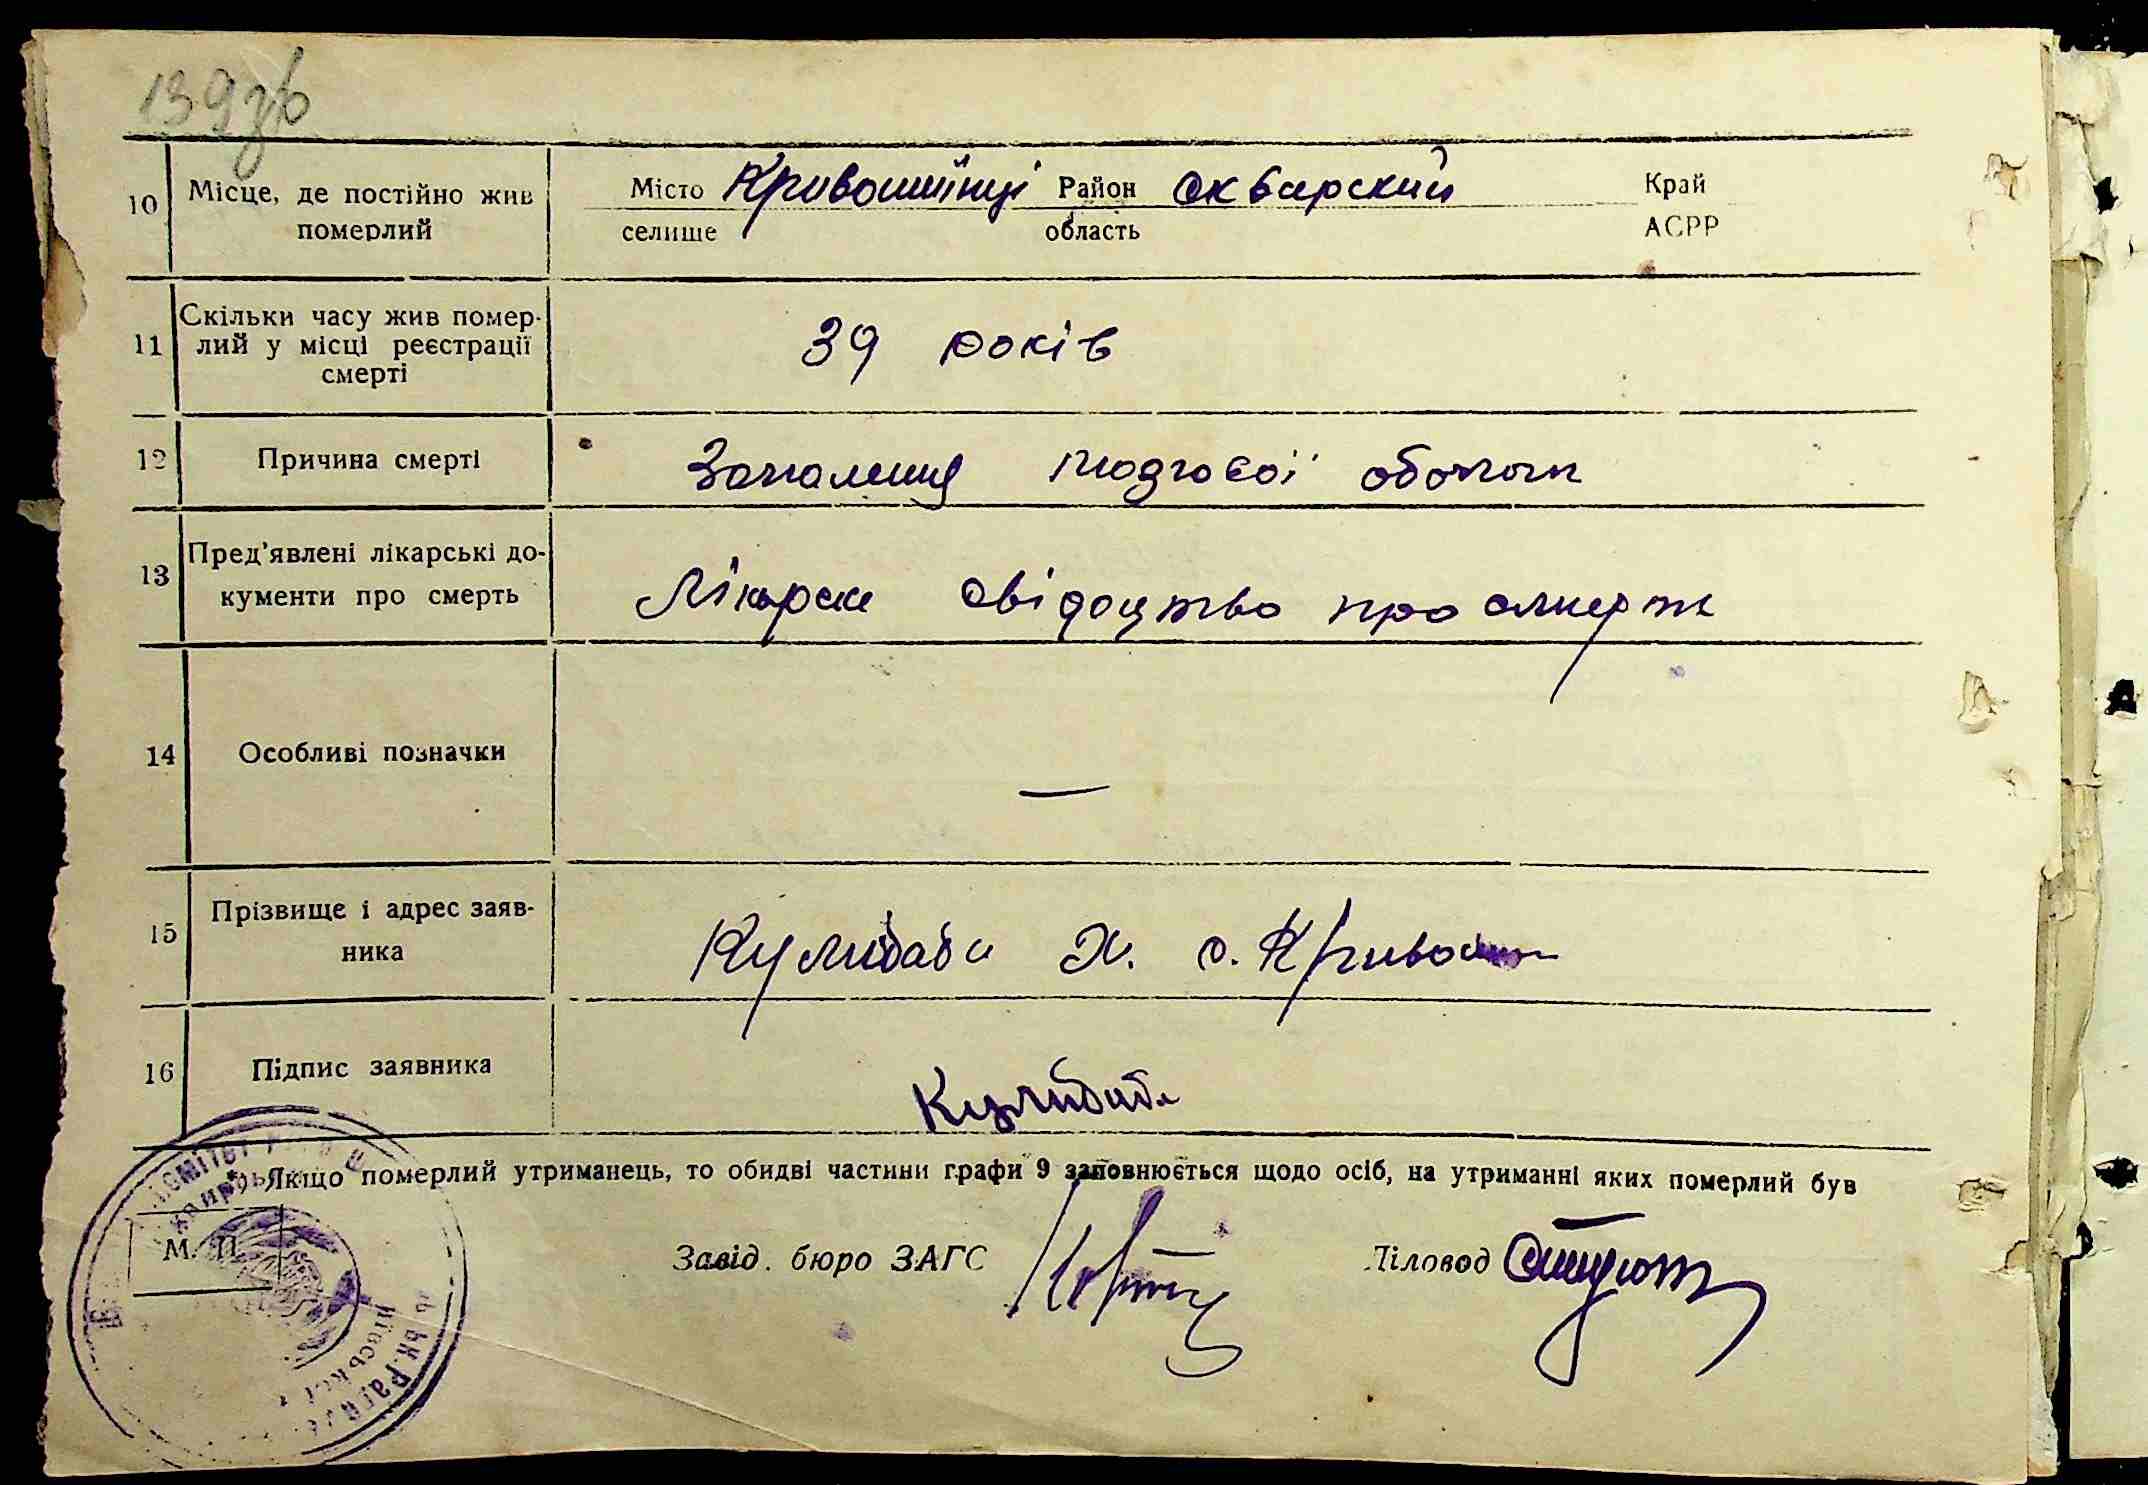 139 зв
10 Місце, де постійно жив
померлий
Місто Кривошиїнці Район Сквирский Край
селище область АСРР
11 Скільки часу жив помер-
лий у місці реєстрації
смерті
39 років
12 Причина смерті
Запалення мозгової
13 Пред'явлені лікарські до-
кументи про смерть
Лікарске свідоцтво про смерть
14 Особливі позначки
—
15 Прізвище і адрес заяв-
ника
Кулибаба Х. с.
16 Підпис заявника
Кулибаба
*) Якщо померлий утриманець, то обидві частини графи 9 заповнюється щодо осіб, на утриманні яких померлий був
М. П.
Завід. бюро ЗАГС
Діловод